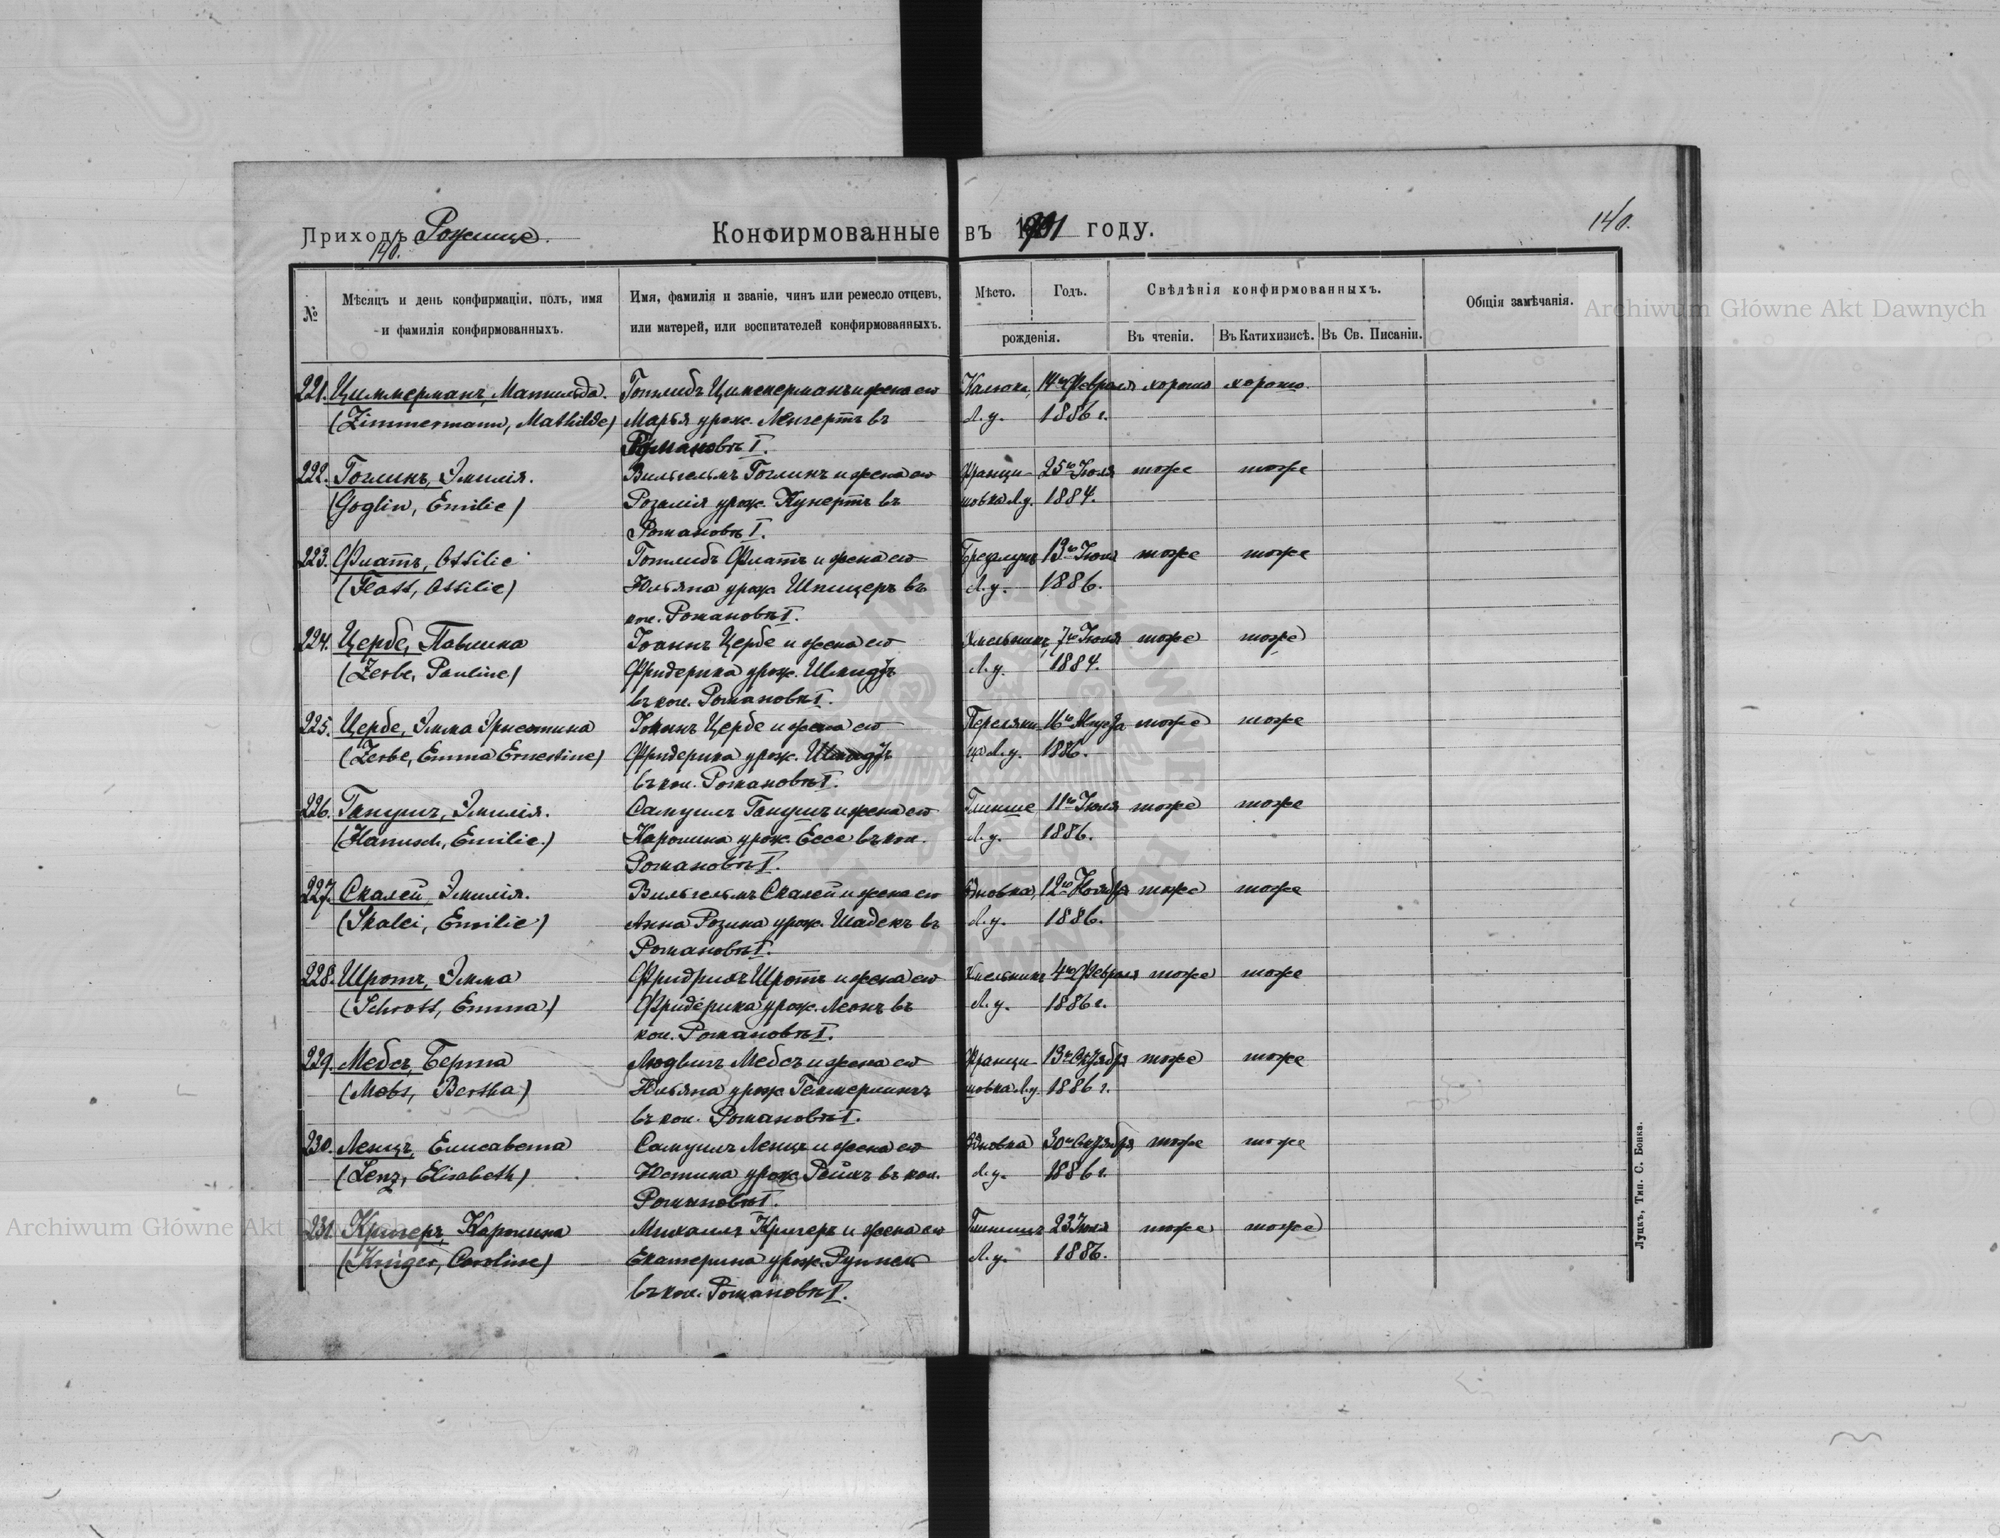 Приходъ Рожище.
140.
Конфирмованные въ 1901 году.
140.
№
Мѣсяцъ и день конфирмаціи, полъ, имя
и фамилія конфирмованныхъ.
Имя, фамилія и званіе, чинъ или ремесло отцевъ,
или матерей, или воспитателей конфирмованныхъ.
Мѣсто.
Годъ.
рожденія.
Свѣдѣнія конфирмованныхъ.
Въ чтеніи.
Въ Катихизисѣ.
Въ Св. Писаніи.
Общія замѣчанія.
221. Циммерманъ, Матильда. Готлибъ Циммерманъ и жена его 14го Февраля хорошо хорошо.
(Zimmermann, Mathilde) Марья урож. Ленгертъ въ Л. у. 1886 г.
Романовѣ I.
222. Гоглинъ, Эмилія. Вильгельмъ Гоглинъ и жена его Франци- 25го Іюля тоже тоже
(Goglin, Emilie) Розалія урож. Кунертъ въ шовка Л. у. 1884.
Романовѣ I.
223. Флатъ, Ottilie Готлибъ Флатъ и жена его 13го Іюля тоже тоже
(Flatt, Ottilie) Юльяна урож. Шпицеръ въ Л. у. 1886.
кол. Романовѣ I.
224. Цербе, Павлина Іоаннъ Цербе и жена его Хмельникъ, 7го Іюля тоже тоже
(Zerbe, Pauline) Фридерика урож. Шмидтъ Л. у. 1884.
въ кол. Романовѣ I.
225. Цербе, Эмма Эрнестина Іоаннъ Цербе и жена его 16го тоже тоже
(Zerbe, Emma Ernestine) Фридерика урож. Шмидтъ Л. у. 1886.
въ кол. Романовѣ I.
226. Ганушъ, Эмилія. Самуилъ Ганушъ и жена его 11го Іюля тоже тоже
(Hanusch, Emilie.) Каролина урож. Ессе въ кол. Л. у. 1886.
Романовѣ I.
227. Скалей, Эмилія. Вильгельмъ Скалей и жена его 12го Ноября тоже тоже
(Skalei, Emilie) Анна Розина урож. Шадекъ въ Л. у. 1886.
Романовѣ I.
228. Шротъ, Эмма Фридрихъ Шротъ и жена его Хмельникъ 4го Февраля тоже тоже
(Schrott, Emma) Фридерика урож. Леонъ въ Л. у. 1886 г.
кол. Романовѣ I.
229. Мебсъ, Берта Людвигъ Мебсъ и жена его Франци- 13го Октября тоже тоже
(Mebs, Bertha) Юльяна урож. Геммерлингъ шовка Л. у. 1886 г.
въ кол. Романовѣ I.
230. Ленцъ, Елисавета Самуилъ Ленцъ и жена его 30го тоже тоже
(Lenz, Elisabeth) Юстина урож. Реймъ въ кол. Л. у. 1886 г.
Романовѣ I.
231. Крюгеръ, Каролина Михаилъ Крюгеръ и жена его 23 Іюля тоже тоже
(Krüger, Caroline) Екатерина урож. Руппель Л. у. 1886.
въ кол. Романовѣ I.
Луцкъ, Тип. С. Бонка.
Archiwum Główne Akt Dawnych
Archiwum Główne Akt Dawnych